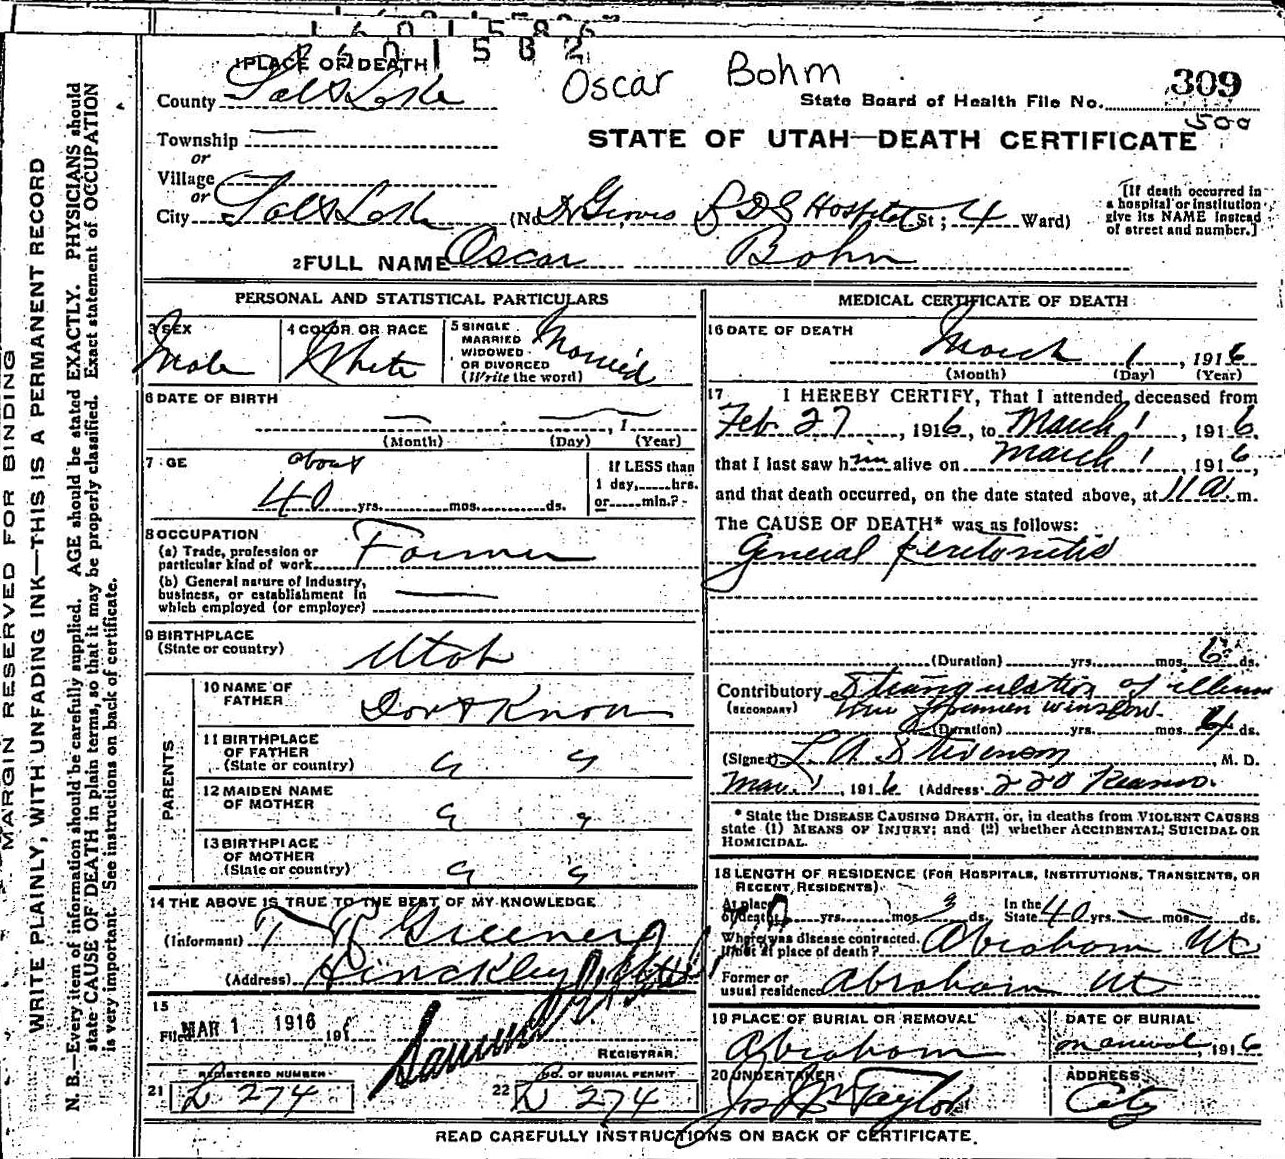 1601582
Oscar Bohm
309
500
1 PLACE OF DEATH
County Salt Lake
State Board of Health File No.
Township —
STATE OF UTAH—DEATH CERTIFICATE
or
Village
or
City Salt Lake (No. Dr Groves L D S Hospital St; 4 Ward)
[If death occurred in a hospital or institution give its NAME instead of street and number.]
2 FULL NAME Oscar Bohn
PERSONAL AND STATISTICAL PARTICULARS
3 SEX
Male
4 COLOR OR RACE
White
5 SINGLE MARRIED WIDOWED OR DIVORCED (Write the word)
Married
6 DATE OF BIRTH
— — , 1
(Month) (Day) (Year)
7 GE
about
40 yrs. mos. ds.
If LESS than 1 day, hrs. or min.?
8 OCCUPATION
(a) Trade, profession or particular kind of work Farmer
(b) General nature of Industry, business, or establishment in which employed (or employer) —
9 BIRTHPLACE
(State or country) Utah
PARENTS
10 NAME OF FATHER Dont Know
11 BIRTHPLACE OF FATHER (State or country) " "
12 MAIDEN NAME OF MOTHER " "
13 BIRTHPLACE OF MOTHER (State or country) " "
14 THE ABOVE IS TRUE TO THE BEST OF MY KNOWLEDGE
(Informant) T R Greener
(Address) Hinckley
15
Filed MAR 1 1916 191
REGISTRAR.
REGISTERED NUMBER
21 D 274
NO. OF BURIAL PERMIT
22 D 274
MEDICAL CERTIFICATE OF DEATH
16 DATE OF DEATH
March 1, 1916
(Month) (Day) (Year)
17 I HEREBY CERTIFY, That I attended deceased from
Feb. 27, 1916, to March 1, 1916,
that I last saw him alive on March 1, 1916,
and that death occurred, on the date stated above, at 11 A. m.
The CAUSE OF DEATH* was as follows:
General peritonitis
(Duration) yrs. mos. 6 ds.
Contributory Strangulation of illium
(SECONDARY)
Foramen Winslow.
(Duration) yrs. mos. ds.
(Signed) L. A. Stevenson, M. D.
Mar. 1, 1916 (Address) 220 Kearns.
* State the DISEASE CAUSING DEATH, or, in deaths from VIOLENT CAUSES
state (1) MEANS OF INJURY; and (2) whether ACCIDENTAL, SUICIDAL OR
HOMICIDAL.
18 LENGTH OF RESIDENCE (FOR HOSPITALS, INSTITUTIONS, TRANSIENTS, OR
RECENT RESIDENTS)
At place of death yrs. mos. 3 ds. In the State 40 yrs. — mos. — ds.
Where was disease contracted, if not at place of death? Abraham Ut
Former or usual residence Abraham Ut
19 PLACE OF BURIAL OR REMOVAL
Abraham
DATE OF BURIAL
on arrival, 1916
20 UNDERTAKER
Taylor
ADDRESS
City
READ CAREFULLY INSTRUCTIONS ON BACK OF CERTIFICATE.
MARGIN RESERVED FOR BINDING
WRITE PLAINLY, WITH UNFADING INK—THIS IS A PERMANENT RECORD
N. B.—Every item of information should be carefully supplied. AGE should be stated EXACTLY. PHYSICIANS should
state CAUSE OF DEATH in plain terms, so that it may be properly classified. Exact statement of OCCUPATION
is very important. See instructions on back of certificate.